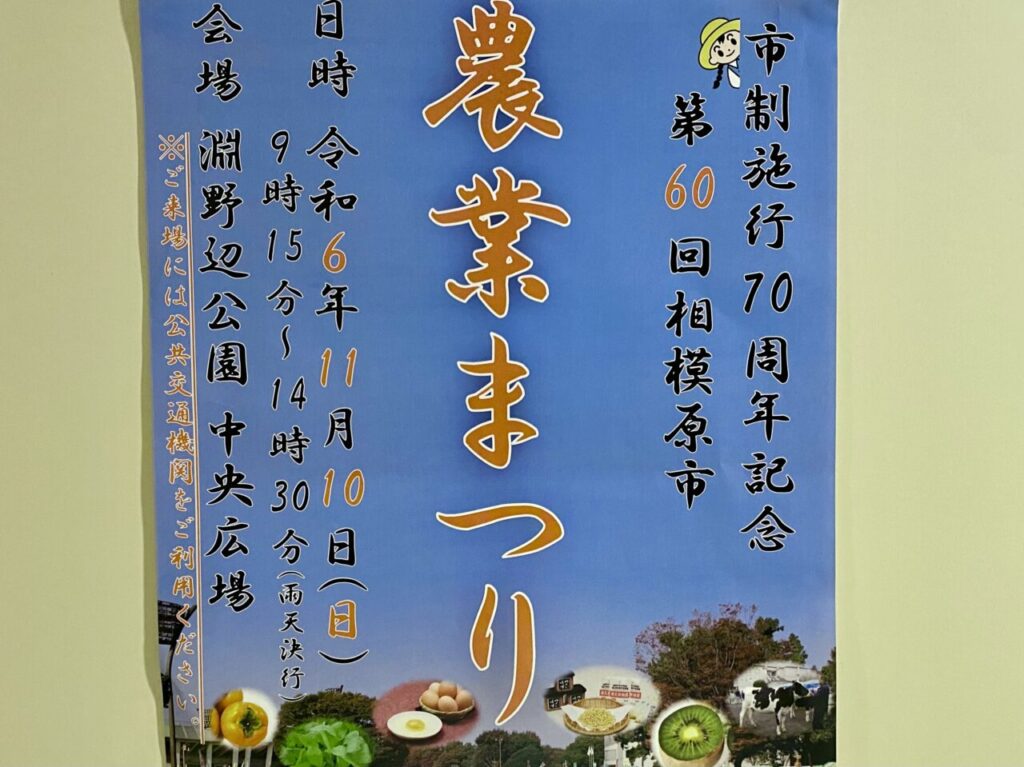 市制施行70周年記念
第60回相模原市
農業まつり
日時 令和6年11月10日(日)
9時15分~14時30分(雨天決行)
会場 淵野辺公園 中央広場
※ご来場には公共交通機関をご利用ください。